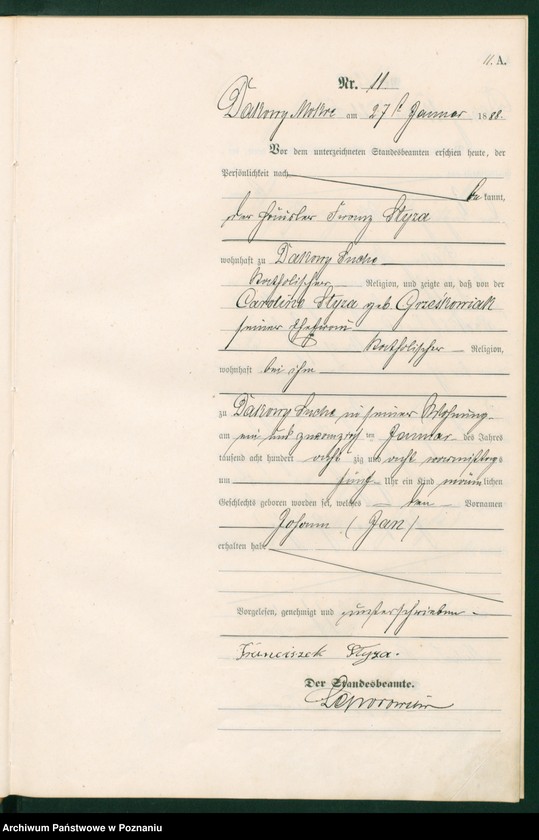 11. A.
Nr. 11
Dakowy Mokre am 27ten Januar 1888.
Vor dem unterzeichneten Standesbeamten erschien heute, der
Persönlichkeit nach
be kannt,
der Häusler Franz Styza
wohnhaft zu Dakowy Suche
katholischer Religion, und zeigte an, daß von der
Caroline Styza geb. Grzeskowiak
seiner Ehefrau
katholischer Religion,
wohnhaft bei ihm
zu Dakowy Suche in seiner Wohnung
am ein und zwanzigsten Januar des Jahres
tausend acht hundert achtzig und acht vormittags
um fünf Uhr ein Kind männlichen
Geschlechts geboren worden sei, welches den Vornamen
Johann (Jan)
erhalten habe
Vorgelesen, genehmigt und unterschrieben
Franciszek Styza.
Der Standesbeamte.
Archiwum Państwowe w Poznaniu